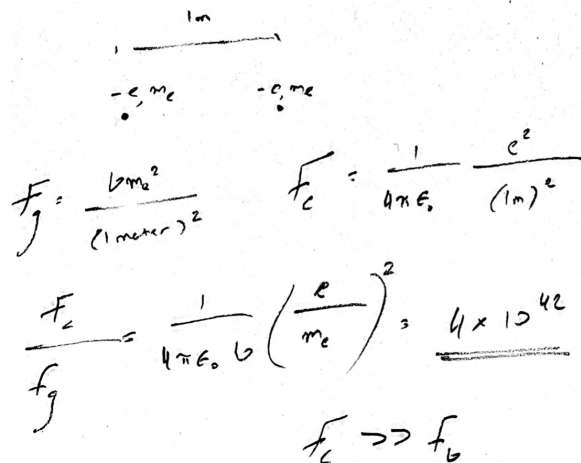 1m
-e, me -e, me
Fg = Gme² / (1 meter)² Fc = 1 / 4πε₀ e² / (1m)²
Fc / Fg = 1 / 4πε₀ G (e / me)² = 4 × 10⁴²
Fc >> FG